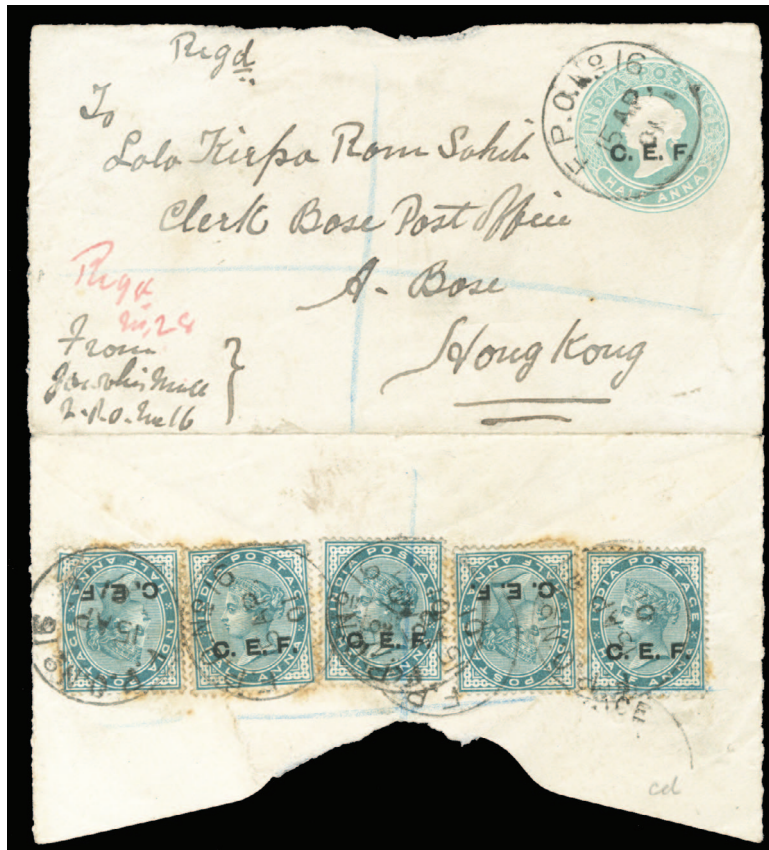 Regd
F.P.O. No 16
15 AP
01
INDIA POSTAGE
C. E. F.
HALF ANNA
To
Lala Kirpa Ram Sahib
Clerk Base Post Office
A - Base
Hong Kong
Regd
No, 28
From
F. P.O. No 16
INDIA POSTAGE
C. E. F.
HALF ANNA
INDIA POSTAGE
C. E. F
HALF ANNA
INDIA POSTAGE
C. E. F.
HALF ANNA
INDIA POSTAGE
C. E. F.
HALF ANNA
INDIA POSTAGE
C. E. F
HALF ANNA
No 16
15 AP
cd